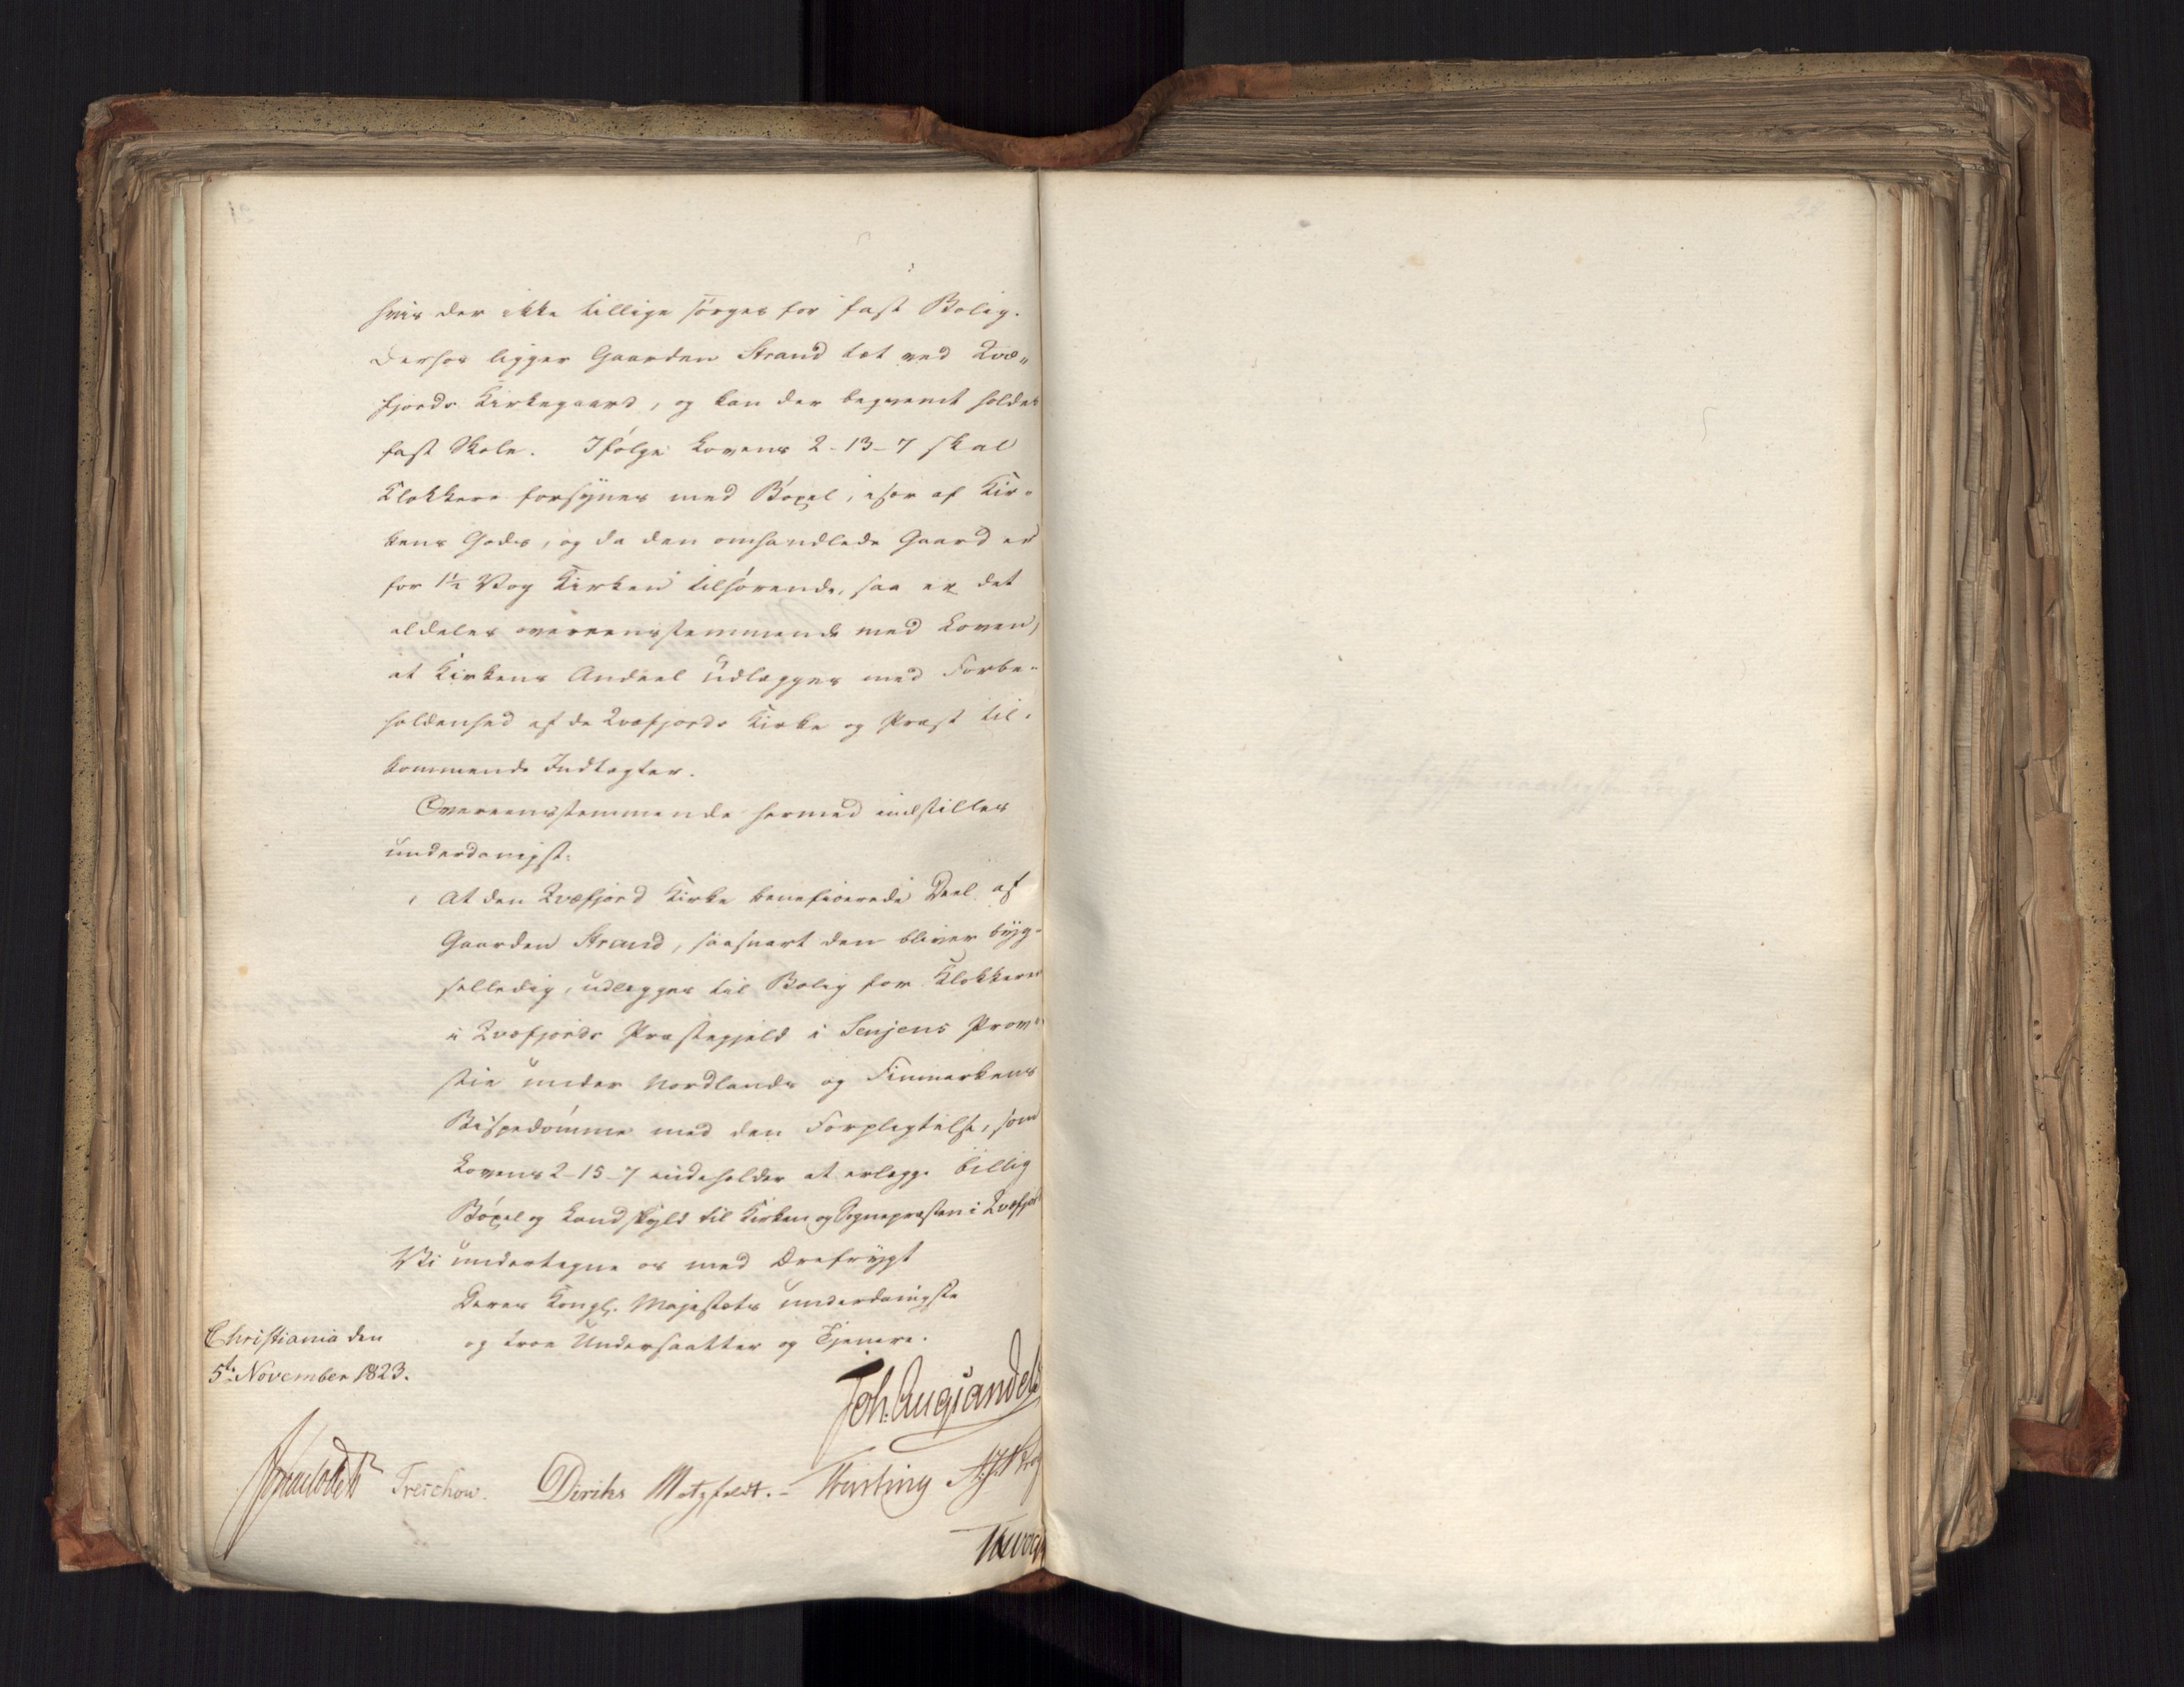 hvis der ikke tillige sørges for fast Bolig.
Derhos ligger Gaarden Strand tæt ved Qvæ„
fjords Kirkegaard, og kan der beqvemt holdes
fast Skole. Ifølge Lovens 2-13-7 skal
Klokkere forsynes med Bøxel, især af Kir„
kens Gods, og da den omhandlede Gaard er
for 1½ Vog Kirken tilhørende, saa er det
aldeles overeensstemmende med Loven,
at Kirkens Andeel udlægges med Forbe„
holdenhed af de Qvæfjords Kirke og Præst til„
kommende Indtægter.
Overeensstemmende hermed indstilles
underdanigst:
At den Qvæfjord Kirke beneficerede Deel af
Gaarden Strand, saasnart den bliver byg„
selledig, udlægges til Bolig for Klokkeren
i Qvæfjords Præstegjeld i Senjens Prov„
stie under Nordlands og Finmarkens
Bispedømme med den Forpligtelse, som
Lovens 2-15-7 indeholder at erlægge billig
Bøxel og Landskyld til Kirken og Sognepræsten i Qvæfjord
Vi undertegne os med Ærefrygt
Deres Kongl. Majestæts underdanigste
og troe Undersaatter og Tjenere.
Christiania den
5te November 1823.
Joh. Aug. Sandels
Treschow. Diriks Motzfeldt. Fasting